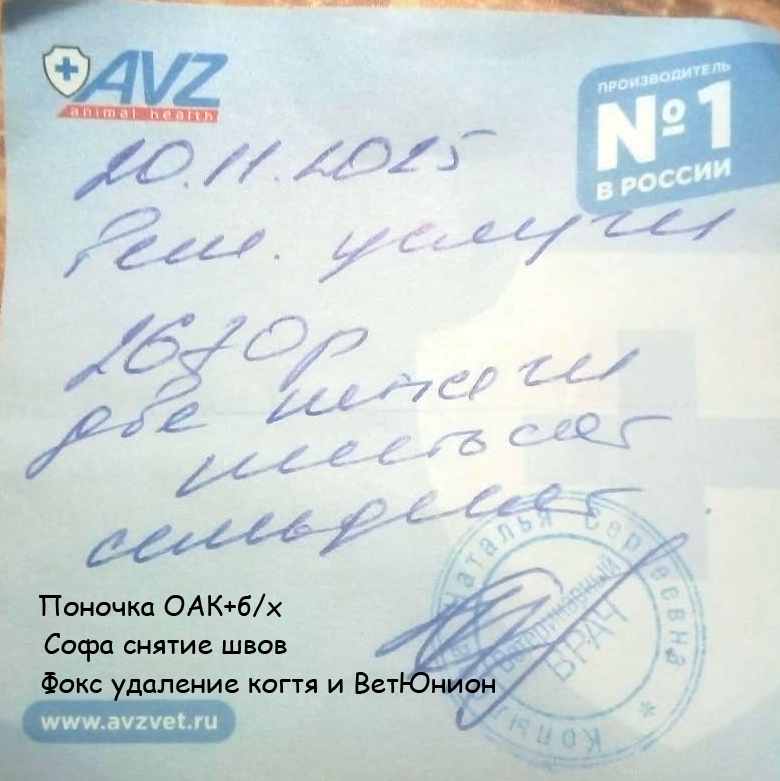 AVZ
animal health
ПРОИЗВОДИТЕЛЬ
№1
В РОССИИ
20.11.2025
Вет. услуги
2670р
две тысячи
шестьсот
семьдесят
Наталья Сергеевна
Ветеринарный
ВРАЧ
Поночка ОАК+б/х
Софа снятие швов
Фокс удаление когтя и ВетЮнион
www.avzvet.ru